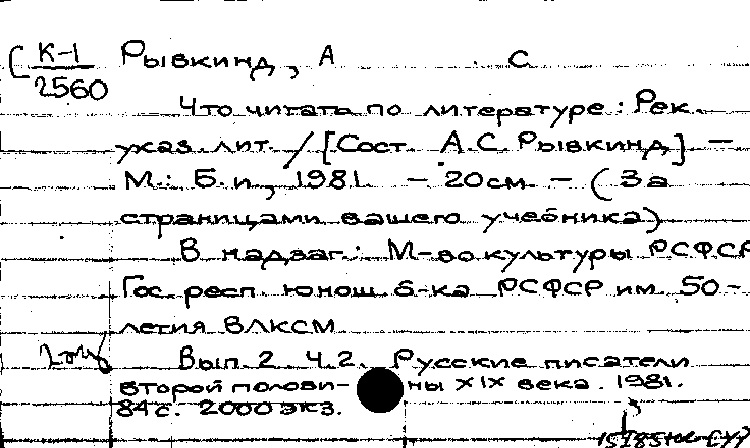 К-1 Рывкинд, А С
2560
Что читать по литературе: Рек.
указ. лит. / [Сост. А.С. Рывкинд] —
М.: Б.и., 1981. — 20см. — (За
страницами вашего учебника)
В надзаг.: М-во культуры РСФСР
Гос. респ. юнош. б-ка РСФСР им. 50-
летия ВЛКСМ
Вып. 2. Ч.2. Русские писатели
второй полови- ны XIX века. 1981.
84с. 2000 экз.